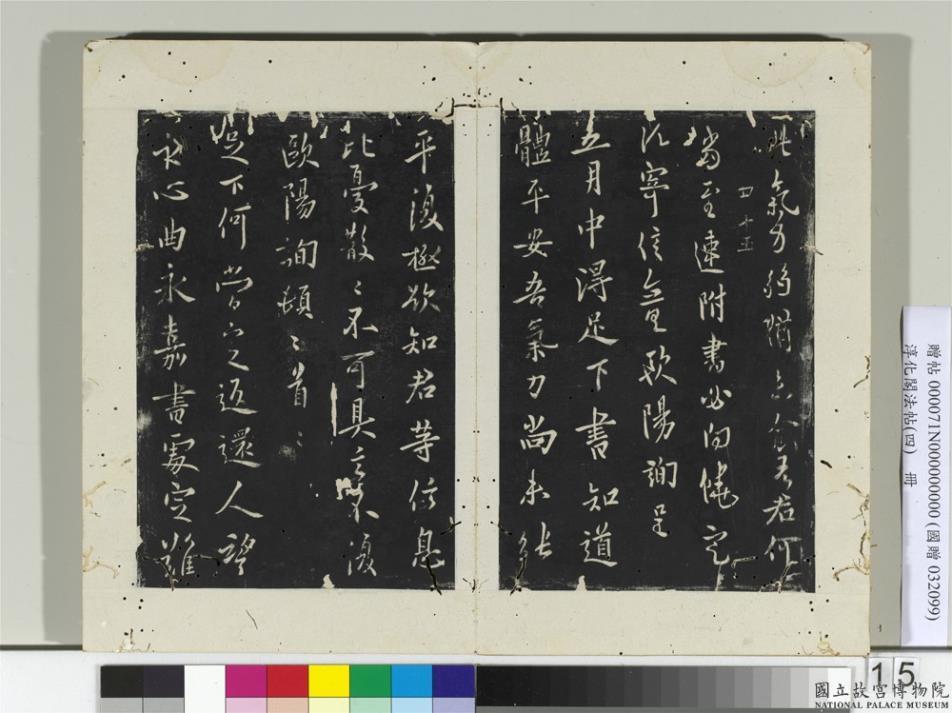 比氣力弱猶未愈吾君何
四十五
當至速附書必向饒定
次寄信重歐陽詢呈
五月中得足下書知道
體平安吾氣力尚未能
平復極欲知君等信息
比憂散ミ不可具言不復
歐陽詢頓ミ首ミ
足下何當以還人望
永心曲永嘉書處定難
贈帖 000071N000000000 (國贈 032099)
淳化閣法帖(四) 冊
15
國立故宮博物院
NATIONAL PALACE MUSEUM